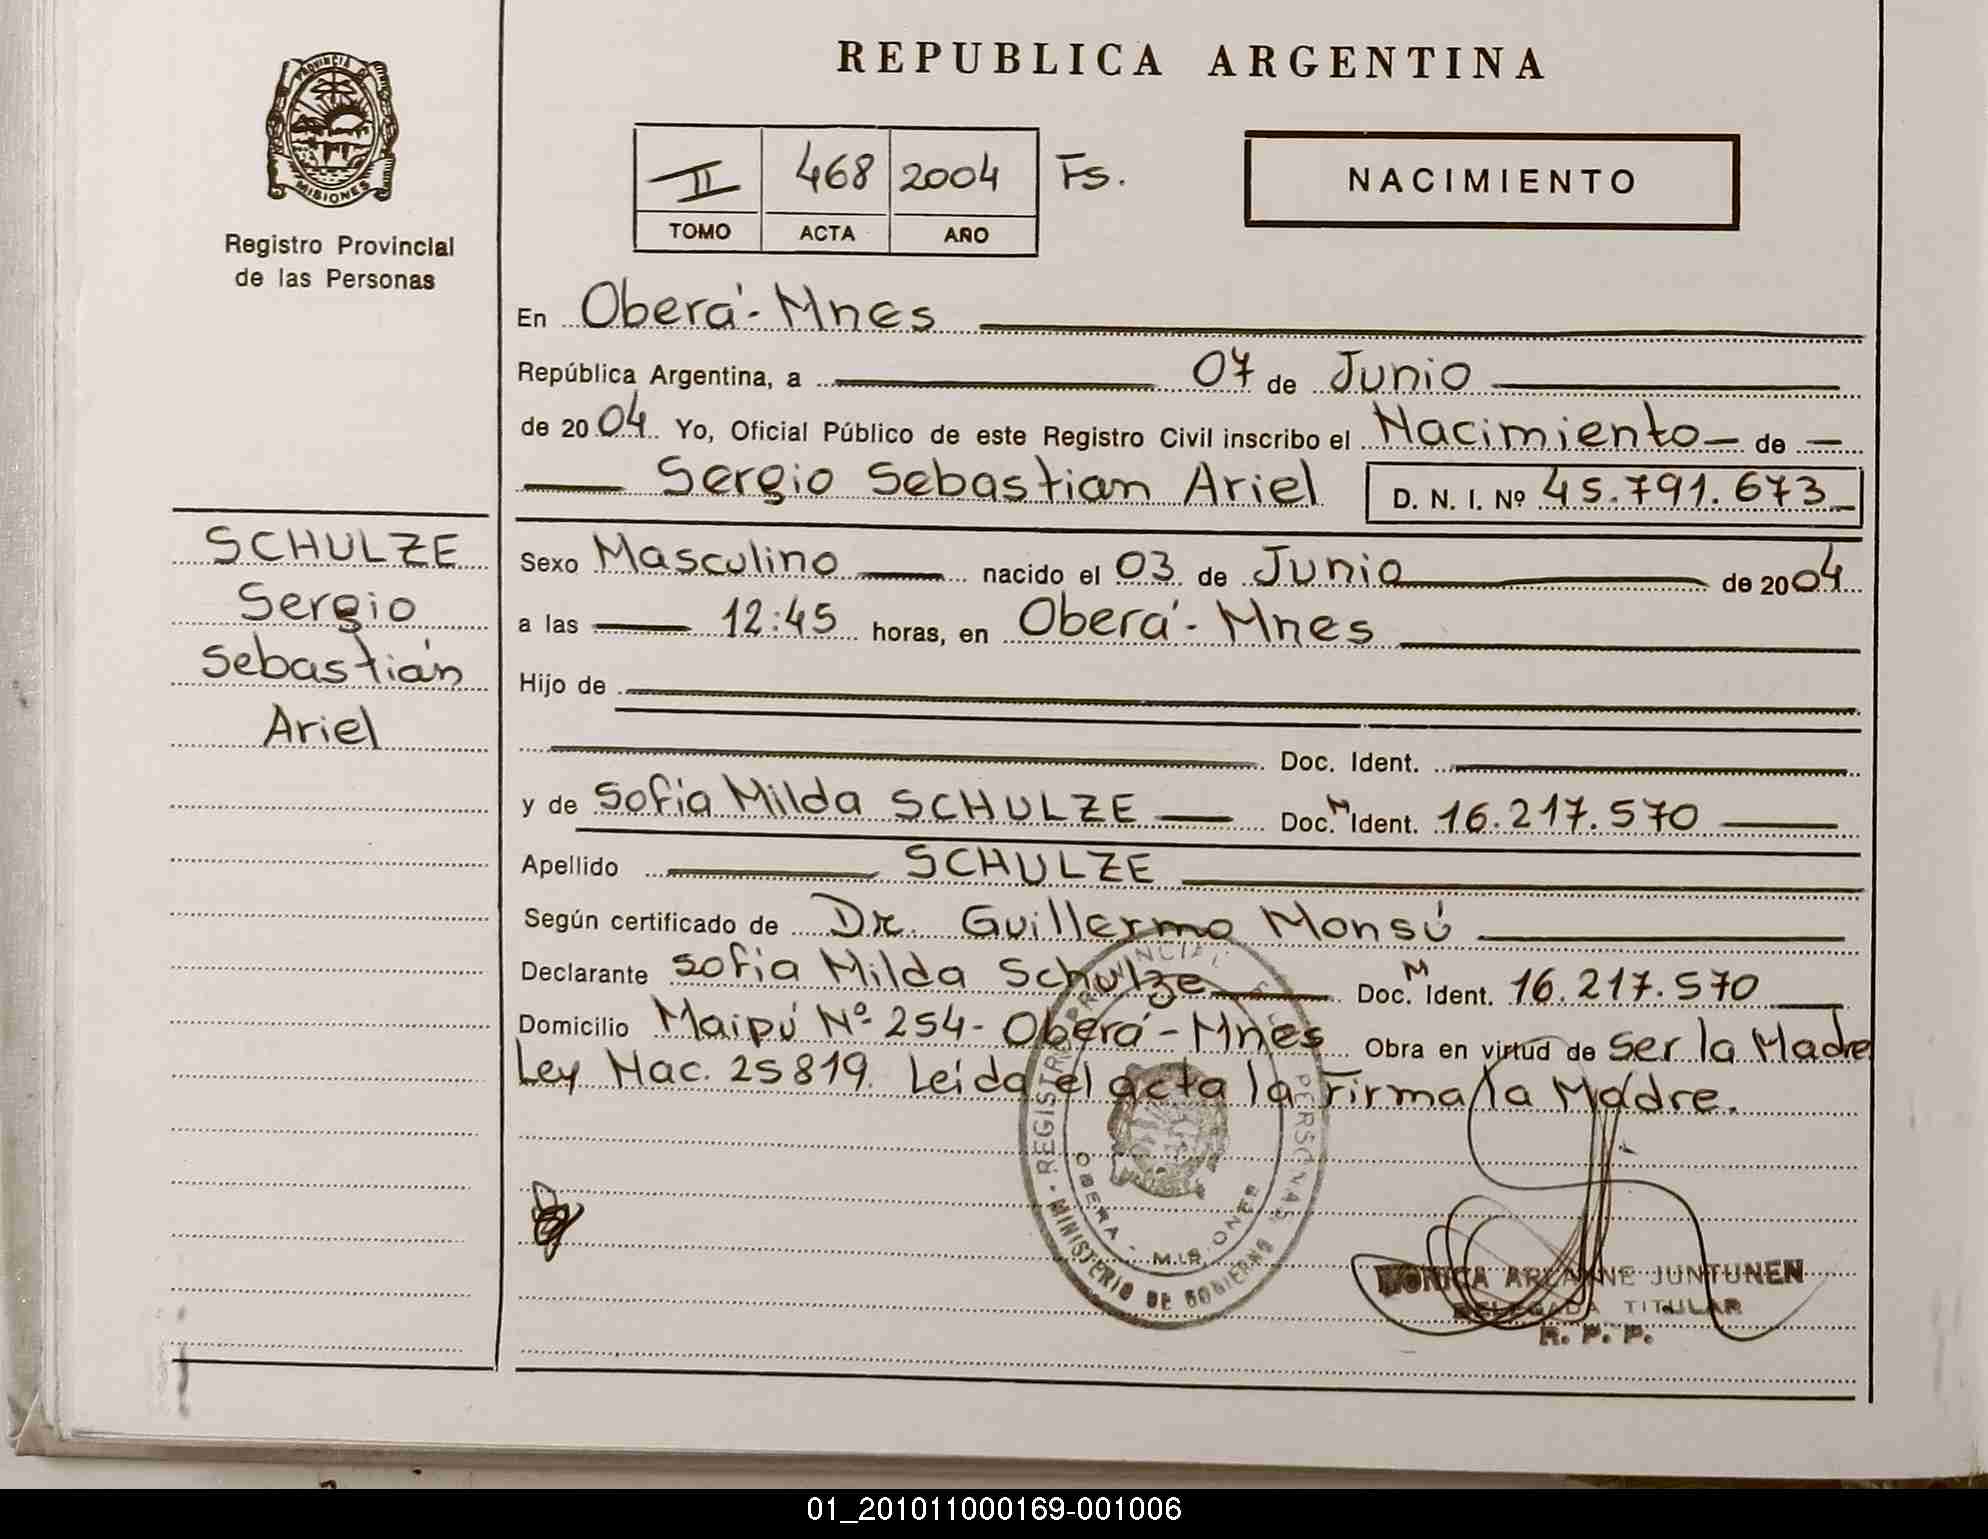 REPUBLICA ARGENTINA
PROVINCIA DE
MISIONES
Registro Provincial
de las Personas
II 468 2004 Fs.
TOMO ACTA AÑO
NACIMIENTO
En Oberá - Mnes
República Argentina, a 07 de Junio
de 2004 Yo, Oficial Público de este Registro Civil inscribo el Nacimiento de
Sergio Sebastian Ariel D. N. I. Nº 45.791.673
SCHULZE
Sergio
Sebastián
Ariel
Sexo Masculino nacido el 03 de Junio de 2004
a las 12:45 horas, en Oberá - Mnes
Hijo de
Doc. Ident.
y de Sofia Milda SCHULZE Doc. M Ident. 16.217.570
Apellido SCHULZE
Según certificado de Dr. Guillermo Monsú
Declarante Sofia Milda Schulze Doc. M Ident. 16.217.570
Domicilio Maipú Nº 254 - Oberá - Mnes Obra en virtud de ser la Madre
Ley Nac. 25819. Leída el acta la Firma la Madre.
REGISTRO PROVINCIAL PERSONAS
MINISTERIO DE GOBIERNO
OBERA - MISIONES
MONICA ARIANNE JUNTUNEN
DELEGADA TITULAR
R. P. P.
01_201011000169-001006